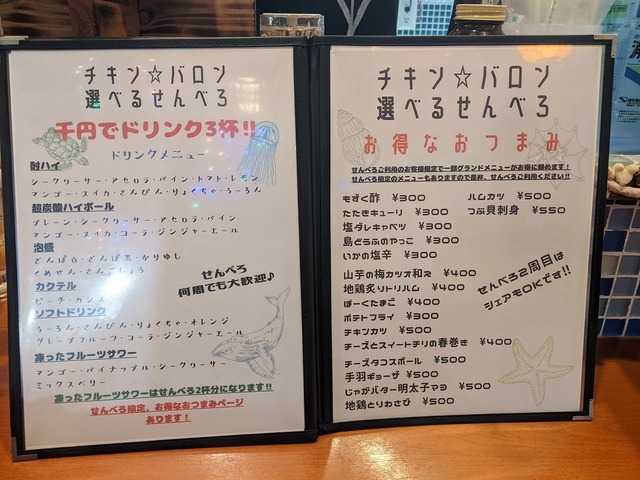 チキン☆バロン
選べるせんべろ
千円でドリンク3杯!!
ドリンクメニュー
酎ハイ
シークヮーサー・アセロラ・パイン・トマト・レモン
マンゴー・スイカ・さんぴん・りょくちゃ・うーろん
超炭酸ハイボール
プレーン・シークヮーサー・アセロラ・パイン
マンゴー・スイカ・コーラ・ジンジャーエール
泡盛
ざんぱ白・ざんぱ黒・かりゆし
くめせん・さんごしょう
カクテル
ピーチ・カシス
ソフトドリンク
うーろん・さんぴん・りょくちゃ・オレンジ
グレープフルーツ・コーラ・ジンジャーエール
凍ったフルーツサワー
マンゴー・パイナップル・シークヮーサー
ミックスベリー
せんべろ
何周でも大歓迎♪
凍ったフルーツサワーはせんべろ2杯分になります!!
せんべろ限定、お得なおつまみページ
あります!
チキン☆バロン
選べるせんべろ
お得なおつまみ
せんべろご利用のお客様限定で一部グランドメニューがお得に頼めます!
せんべろ限定のメニューもありますので是非、せんべろご利用ください!!
もずく酢 ¥300
たたきキューリ ¥300
塩ダレキャベツ ¥300
島どうふのやっこ ¥300
いかの塩辛 ¥300
山芋の梅カツオ和え ¥400
地鶏炙りトリハム ¥400
ぽーくたまご ¥400
ポテトフライ ¥300
チキンカツ ¥500
チーズとスイートチリの春巻き ¥400
チーズタコスボール ¥500
手羽ギョーザ ¥500
じゃがバター明太子マヨ ¥500
地鶏とりわさび ¥500
ハムカツ ¥500
つぶ貝刺身 ¥550
せんべろ2周目は
シェアもOKです!!